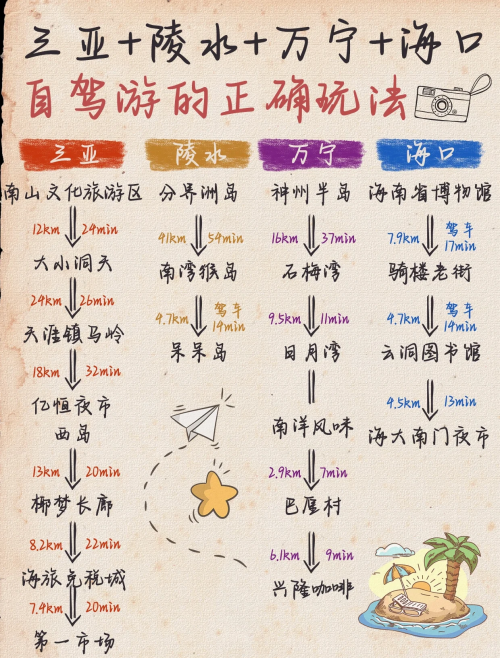 三亚+陵水+万宁+海口
自驾游的正确玩法
三亚
南山文化旅游区
12km 24min
大小洞天
24km 26min
天涯镇马岭
18km 32min
亿恒夜市
西岛
13km 20min
椰梦长廊
8.2km 22min
海旅免税城
7.4km 20min
第一市场
陵水
分界洲岛
41km 54min
南湾猴岛
4.7km 驾车
14min
呆呆岛
万宁
神州半岛
16km 37min
石梅湾
9.5km 11min
日月湾
南洋风味
2.9km 7min
巴厘村
6.1km 9min
兴隆咖啡
海口
海南省博物馆
7.9km 驾车
17min
骑楼老街
4.7km 驾车
14min
云洞图书馆
4.5km 13min
海大南门夜市